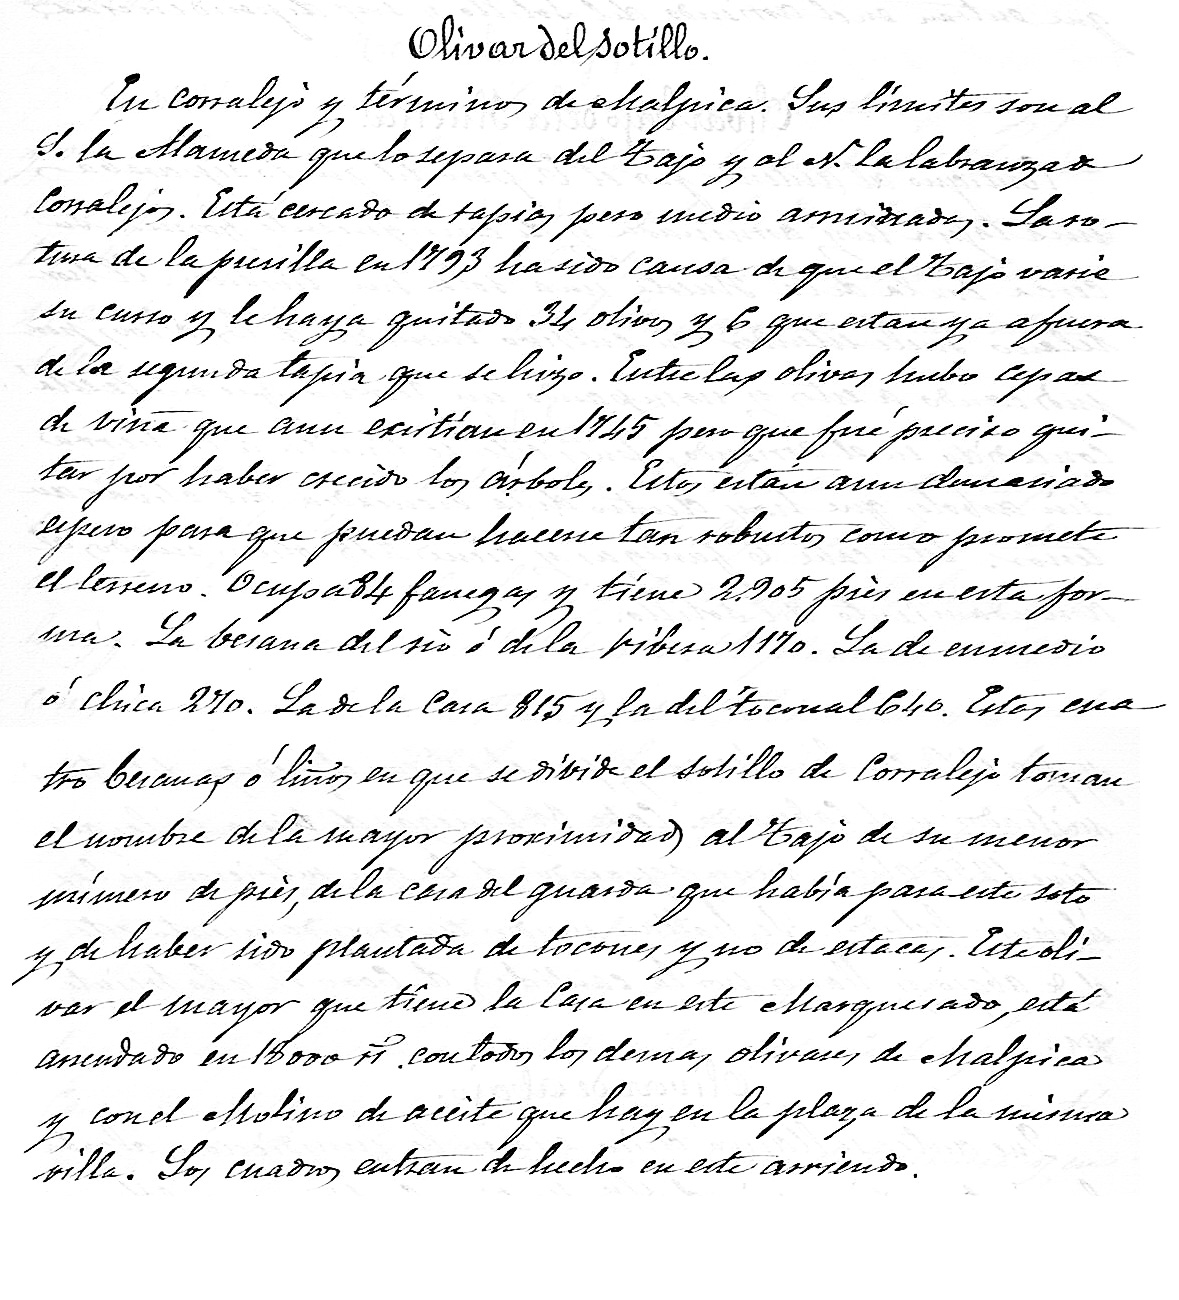 Olivar del Sotillo.
En Corralejo y términos de Malpica. Sus límites son al
S. la Alameda que lo separa del Tajo y al N. la labranza de
Corralejos. Está cercado de tapias pero medio arruinados. La ro-
tura de la presilla en 1793 ha sido causa de que el Tajo varie
su curso y le haya quitado 34 olivos y 6 que estan ya afuera
de la segunda tapia que se hizo. Entre las olivas hubo cepas
de viña que aun existían en 1745 pero que fué preciso qui-
tar por haber crecido los árboles. Estos están aun demasiado
espeso para que puedan hacerse tan robustos como promete
el terreno. Ocupa 84 fanegas y tiene 2.905 piès en esta for-
ma. La besana del rio ó de la ribera 1170. La de enmedio
ó chica 270. La de la Casa 815 y la del toconal 640. Estas cua
tro besanas ó liños en que se divide el sotillo de Corralejo toman
el nombre de la mayor proximidad al Tajo de su menor
número de piès, de la casa del guarda que había para este soto
y de haber sido plantada de tocones y no de estacas. Este oli-
var el mayor que tiene la Casa en este Marquesado, está
arrendado en 18000 rs. con todos los demas olivares de Malpica
y con el Molino de aceite que hay en la plaza de la misma
villa. Los cuadros entran de hecho en este arriendo.